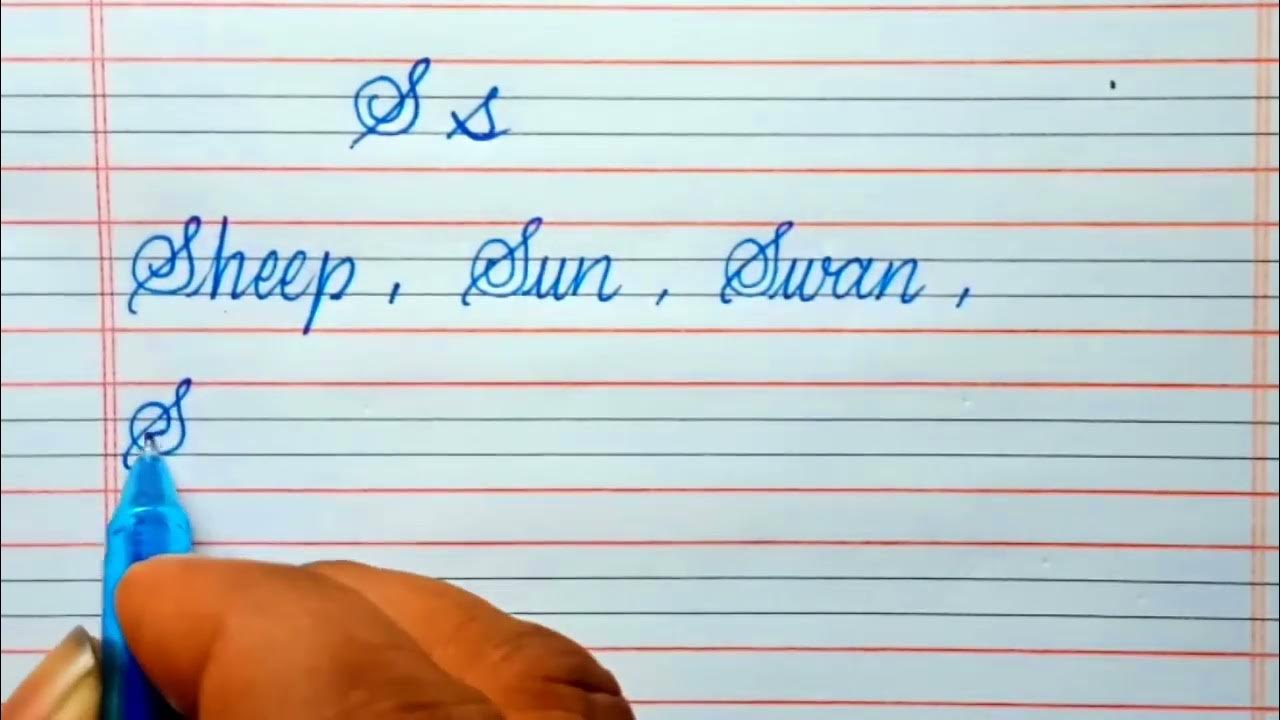 S s
Sheep , Sun , Swan ,
S